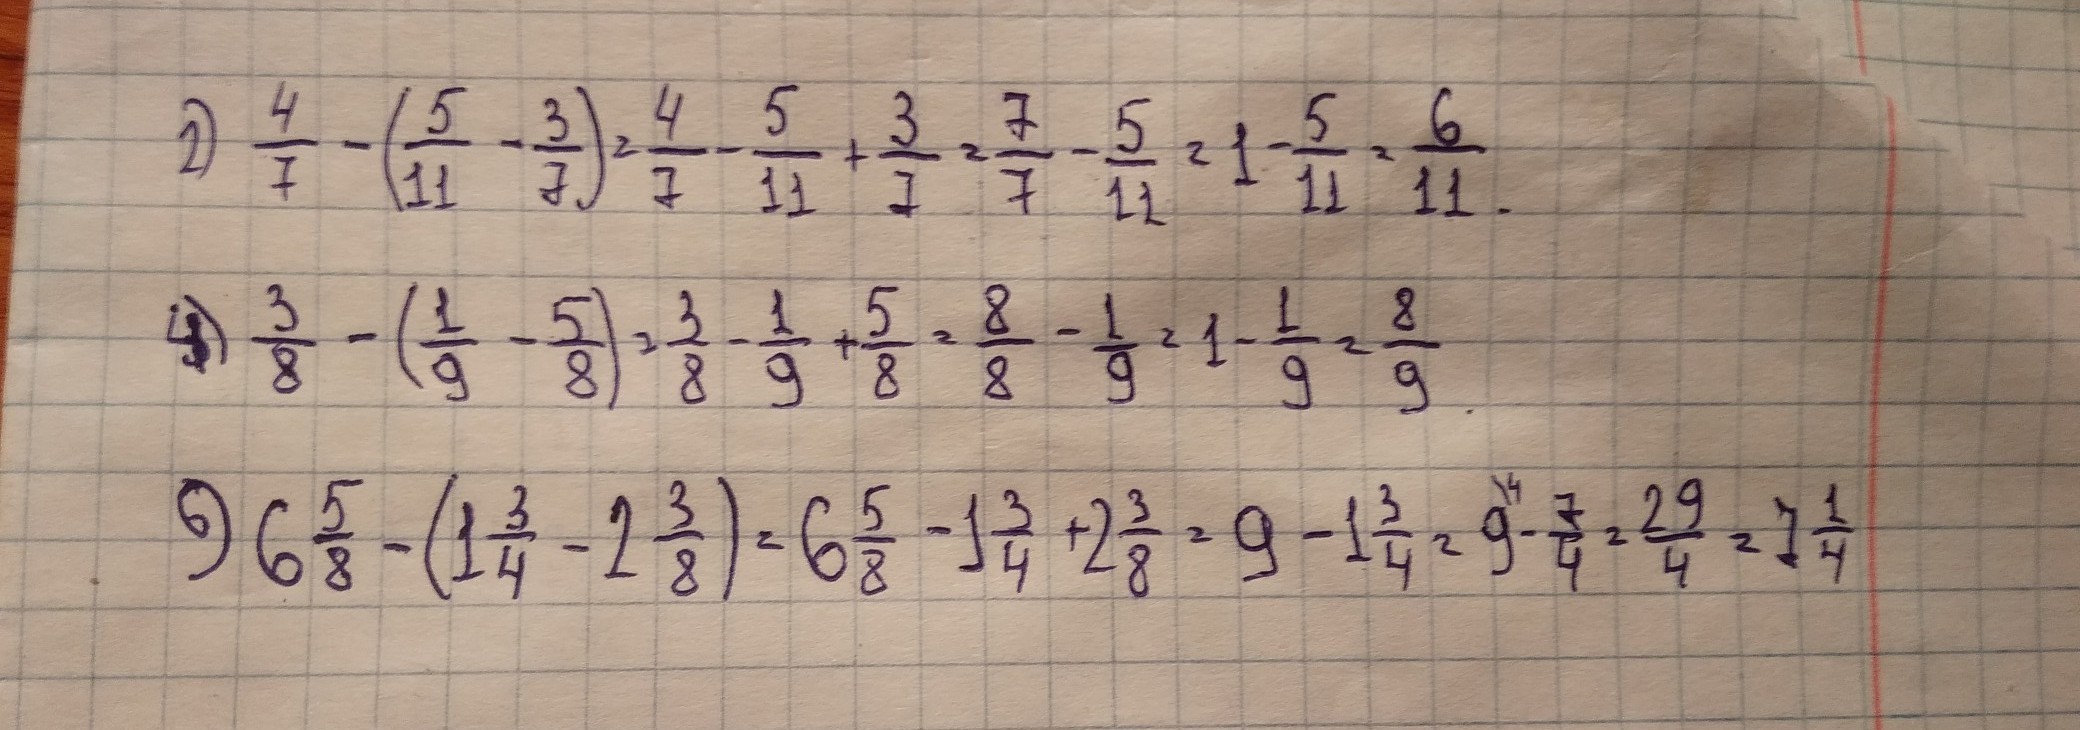 2) 4/7 - (5/11 - 3/7) = 4/7 - 5/11 + 3/7 = 7/7 - 5/11 = 1 - 5/11 = 6/11.
4) 3/8 - (1/9 - 5/8) = 3/8 - 1/9 + 5/8 = 8/8 - 1/9 = 1 - 1/9 = 8/9.
6) 6 5/8 - (1 3/4 - 2 3/8) = 6 5/8 - 1 3/4 + 2 3/8 = 9 - 1 3/4 = 9\4 - 7/4 = 29/4 = 7 1/4